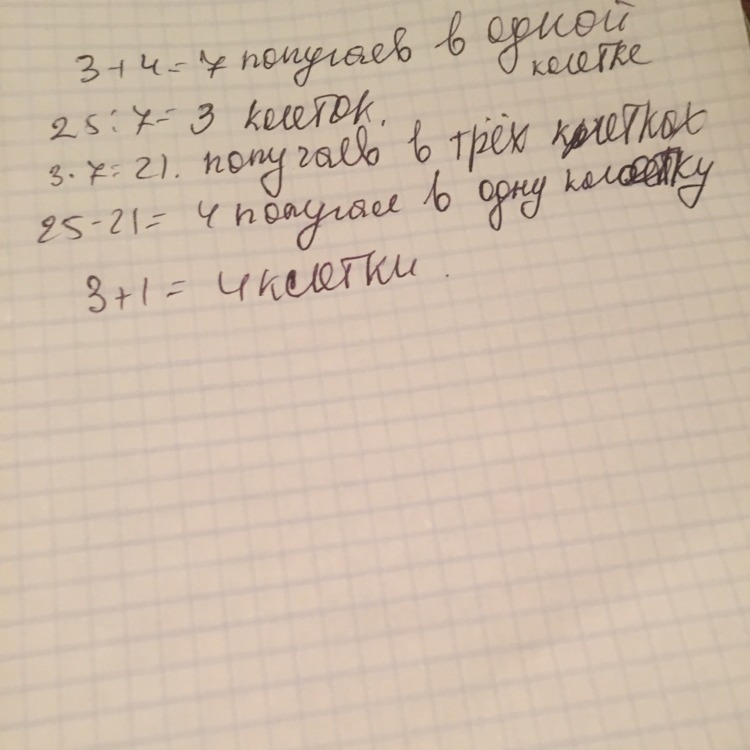 3+4=7 попугаев в одной
клетке
25:7=3 клеток.
3·7=21. попугаев в трёх клетках
25-21=4 попугая в одну клетку
3+1=4 клетки.